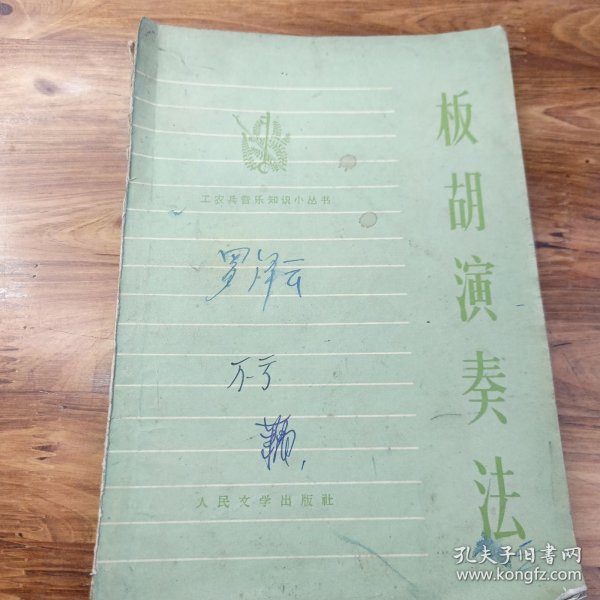 板胡演奏法
工农兵音乐知识小丛书
人民文学出版社
孔夫子旧书网
www.kongfz.com